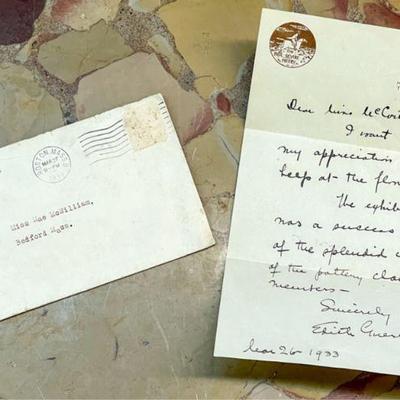 BOSTON, MASS.
MAR 27
PM
1933
Miss Mae McGilliam,
Bedford Mass.
THE
PAUL REVERE
POTTERY
Dear Miss McCor
I want
my appreciation
help at the flow
The exhib
was a success
of the splendid
of the pottery cla
members—
Sincerely
Edith Guer
Mar 26 1933